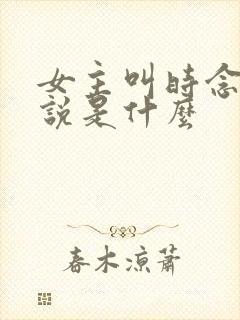 女主叫時念
說是什麼
春木涼蕭